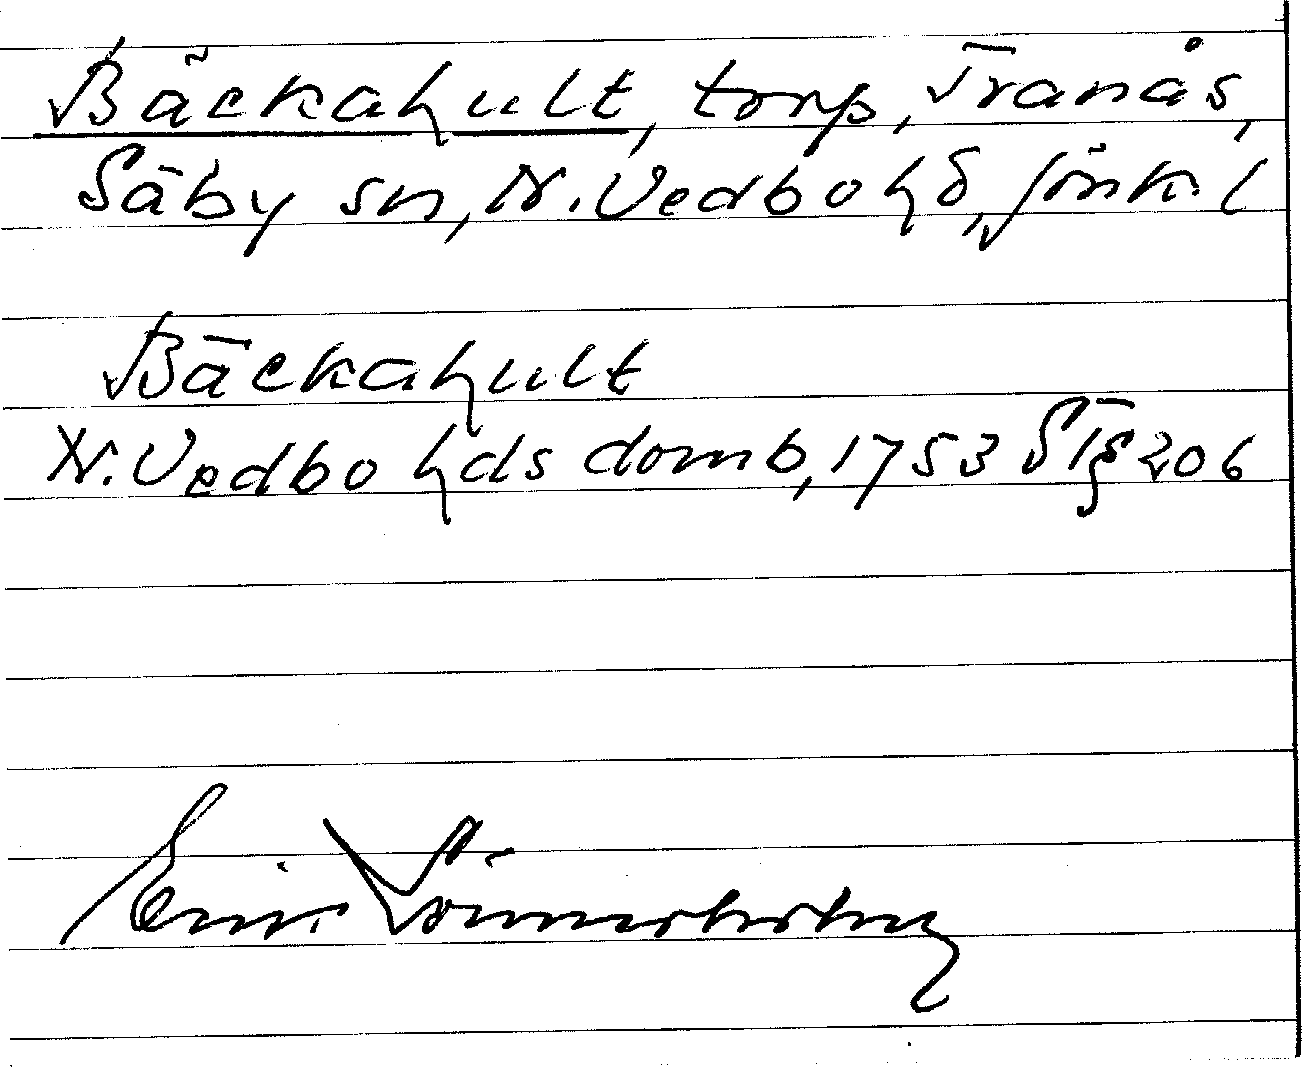 Bäckahult, torp, Tranås,
Säby sn, N. Vedbo hd, Jönk. l
Bäckahult
N. Vedbo hds domb, 1753 ST § 206